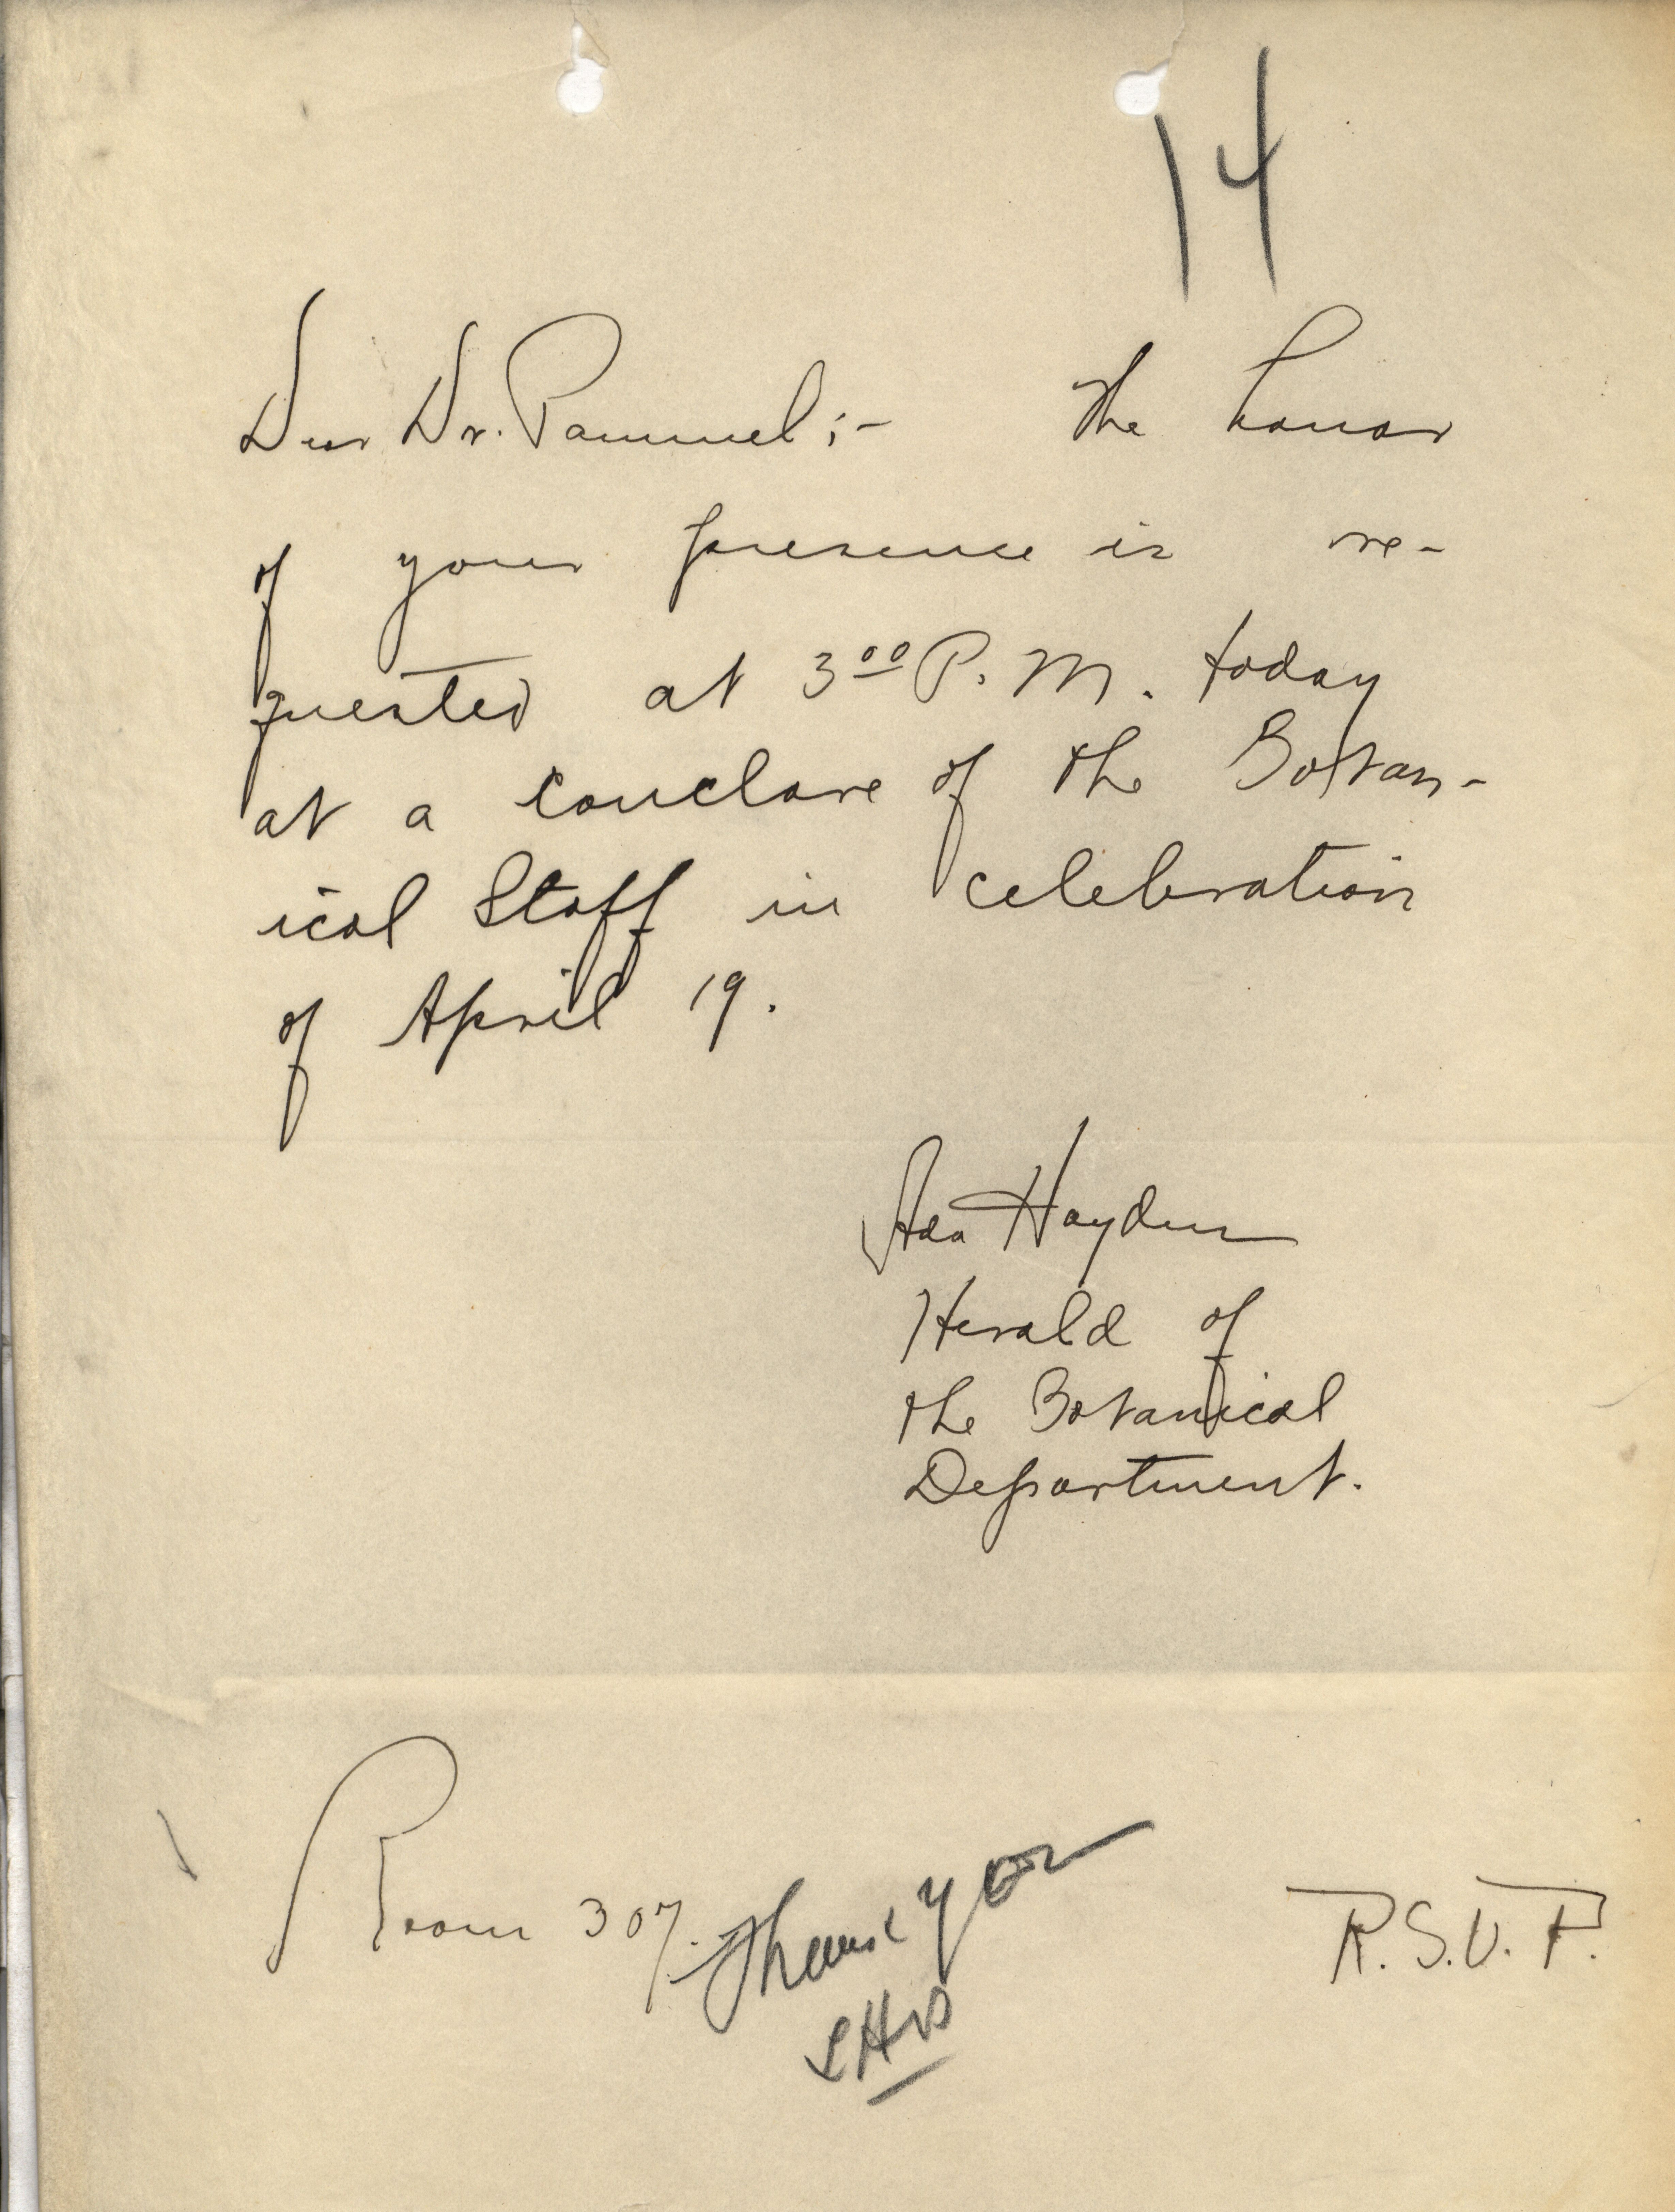 14
Dear Dr. Pammel:- The honor
of your presence is re-
quested at 3 00 P.M. today
at a conclave of the Botan-
ical Staff in celebration
of April 19.
Ada Hayden
Herald of
the Botanical
Department.
Room 307.
Thank you
LHP
R.S.V.P.